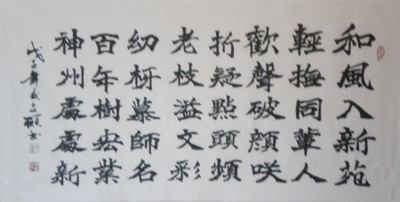 和風入新苑
輕撫同輩人
歡聲破顏咲
折疑點頭頻
老枝溢文彩
幼枒慕師名
百年樹宏業
神州處處新
戊子年